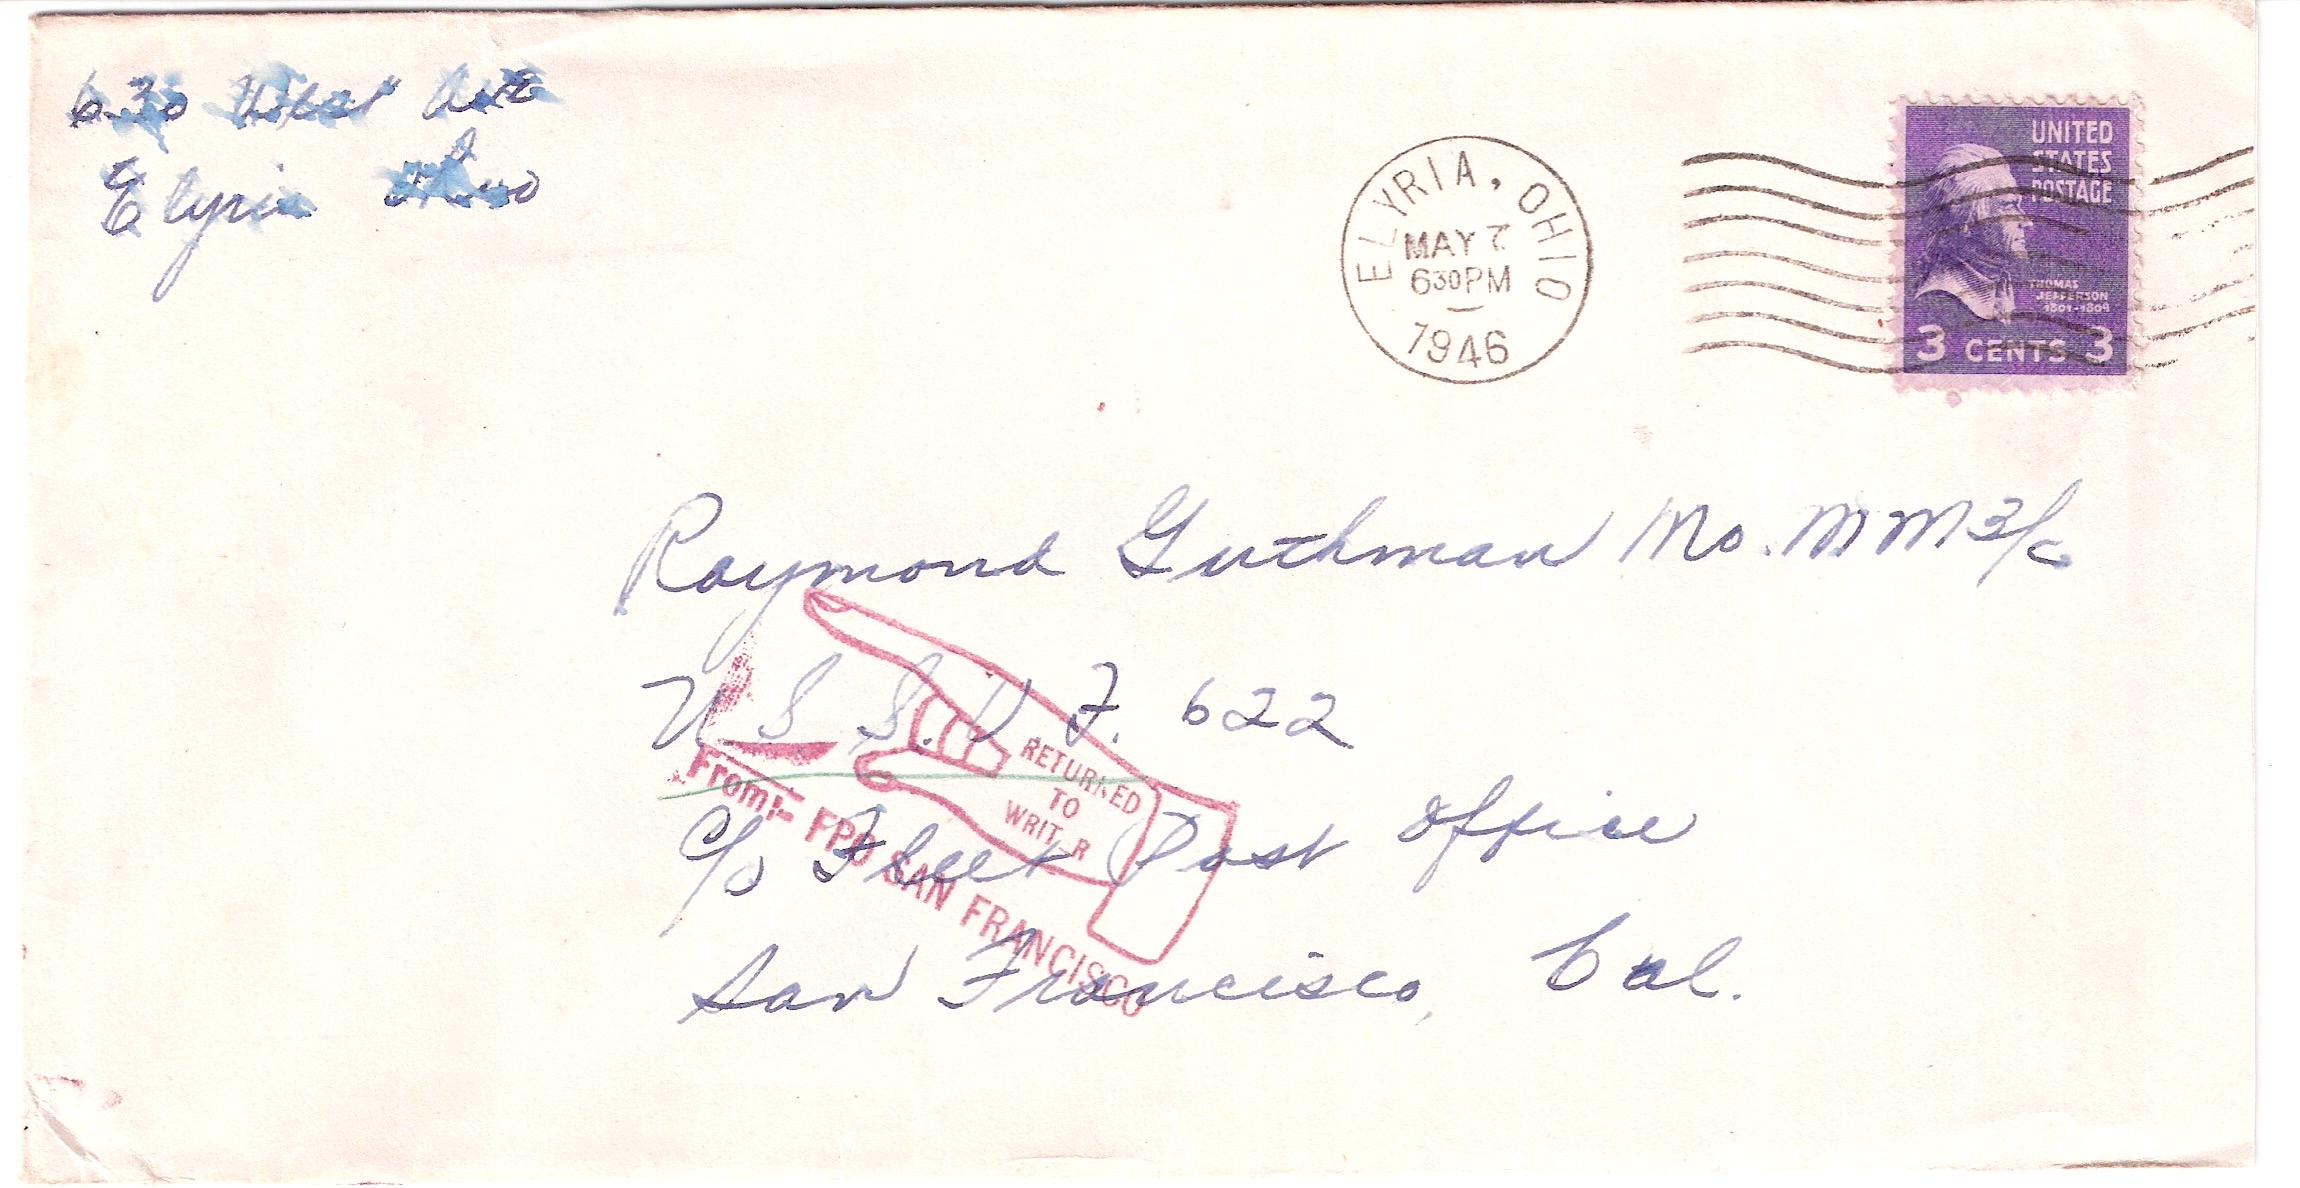 630 West Ave
Elyria Ohio
ELYRIA, OHIO
MAY 7
630PM
1946
UNITED
STATES
POSTAGE
THOMAS
JEFFERSON
1801-1809
3 CENTS 3
Raymond Guthman Mo. M M 3/c
U.S.S. V. F. 622
c/o Fleet Post Office
San Francisco, Cal.
RETURNED
TO
WRIT_R
From:- FPO SAN FRANCISCO